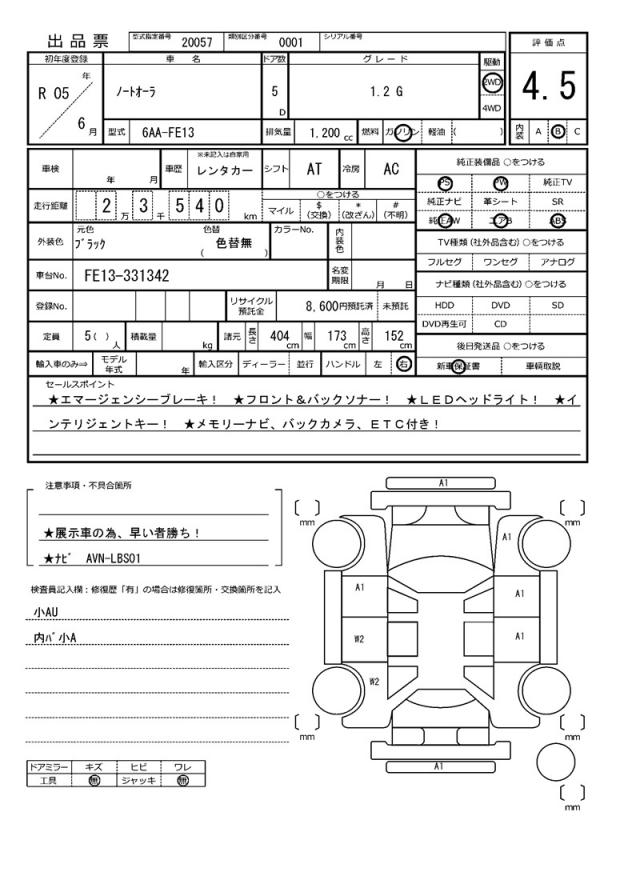 出品票 型式指定番号 20057 類別区分番号 0001 シリアル番号
初年度登録 車名 ドア数 グレード 駆動 評価点
R 05 年 ノートオーラ 5 D 1.2 G 2WD 4.5
4WD
6 月 型式 6AA-FE13 排気量 1.200 cc 燃料 ガソリン 軽油 ( ) 内装 A B C
車検 年 月 車歴 ※未記入は自家用 レンタカー シフト AT 冷房 AC 純正装備品 ○をつける
PS PW 純正TV
走行距離 2 万 3 千 5 4 0 km ○をつける 純正ナビ 革シート SR
マイル $ (交換) * (改ざん) # (不明) 純正AW エアB ABS
外装色 元色 ブラック 色替 色替無 ( ) カラーNo. 内装色 TV種類 (社外品含む) ○をつける
フルセグ ワンセグ アナログ
車台No. FE13-331342 名変期限 月 日 ナビ種類 (社外品含む) ○をつける
登録No. リサイクル預託金 8,600円預託済 未預託 HDD DVD SD
DVD再生可 CD
定員 5( ) 人 積載量 kg 諸元 長さ 404 cm 幅 173 cm 高さ 152 cm 後日発送品 ○をつける
輸入車のみ⇒ モデル年式 年 輸入区分 ディーラー 並行 ハンドル 左 右 新車保証書 車輌取説
セールスポイント
★エマージェンシーブレーキ! ★フロント&バックソナー! ★LEDヘッドライト! ★イ
ンテリジェントキー! ★メモリーナビ、バックカメラ、ETC付き!
注意事項・不具合箇所
★展示車の為、早い者勝ち!
★ナビ AVN-LBS01
検査員記入欄:修復歴「有」の場合は修復箇所・交換箇所を記入
小AU
内バ小A
A1
mm mm
A1
A1 A1
W2 A1
W2
mm mm
A1
mm
ドアミラー キズ ヒビ ワレ
工具 無 ジャッキ 無